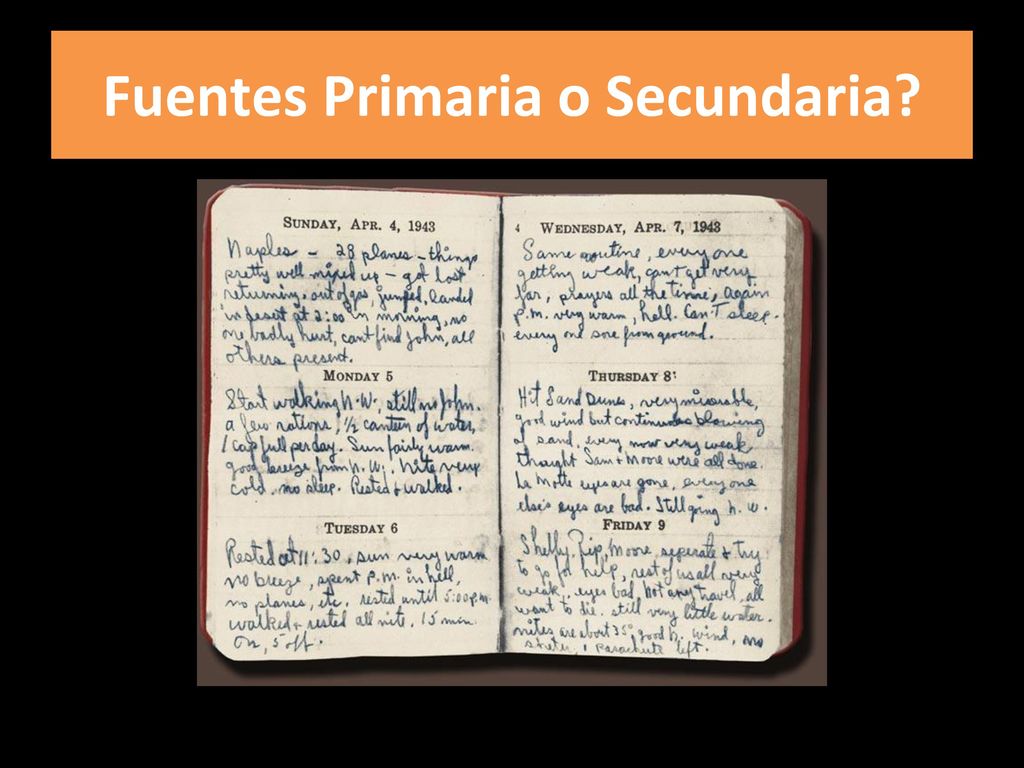 Fuentes Primaria o Secundaria?
SUNDAY, APR. 4, 1943
Naples – 28 planes – things
pretty well mixed up – got lost
returning, out of gas, jumped, landed
in desert at 2:00 in morning, no
one badly hurt, cant find John, all
others present.
MONDAY 5
Start walking N.W., still no John.
a few rations, 1/2 canteen of water,
1 cap full per day. Sun fairly warm.
good breeze from N.W. Nite very
cold, no sleep. Rested & walked.
TUESDAY 6
Rested at 11:30, sun very warm
no breeze, spent P.M. in hell,
no planes, etc. rested until 5:00 P.M.
walked & rested all nite, 15 min
on, 5 off.
4 WEDNESDAY, APR. 7, 1943
Same routine, everyone
getting weak, cant get very
far, prayers all the time, again
p.m. very warm, hell. Can't sleep.
every one sore from ground.
THURSDAY 8
Hit Sand Dunes, very miserable,
good wind but continuous blowing
of sand, every now very weak
thought Sam & Moore were all done.
La Motte eyes are gone, everyone
else's eyes are bad. Still going N.W.
FRIDAY 9
Shelly, Rip, Moore, seperate & try
to go for help, rest of us all very
weak, eyes bad, not any travel, all
want to die. still very little water.
nites are about 35° good N. wind, no
shelter, 1 parachute left.